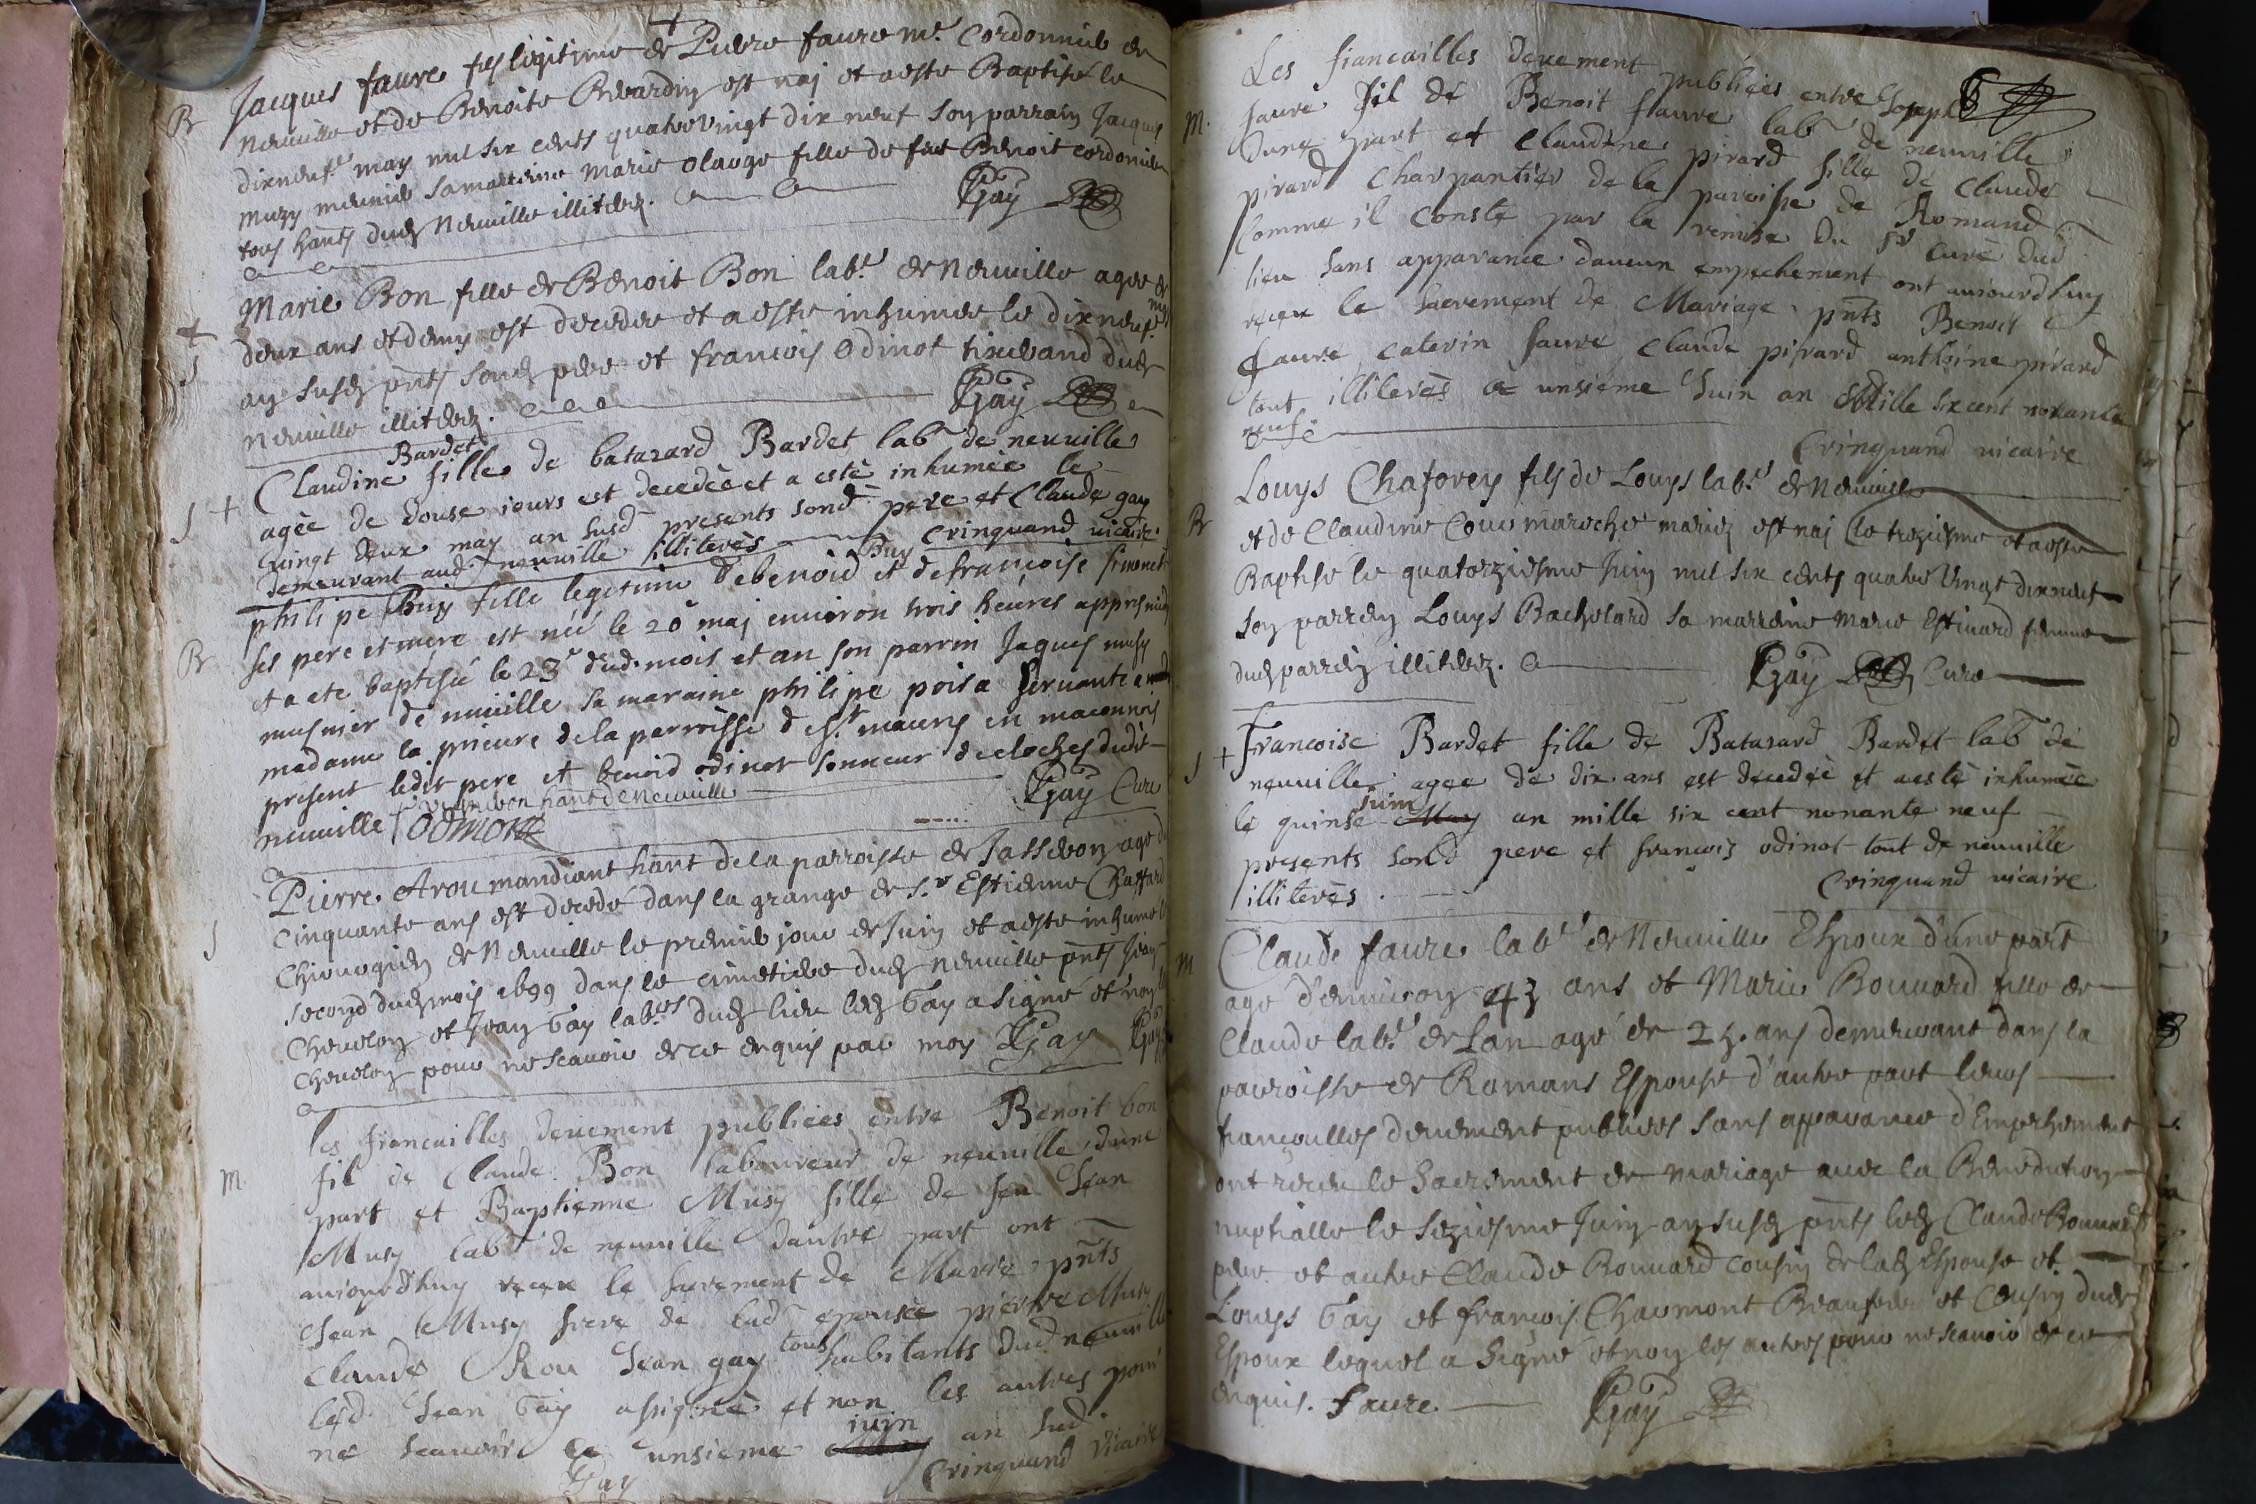 B Jacques faure fils legitime de Pierre faure me. Cordonnier de
Neuville et de Benoite Brevardin est naj et a este Baptisé le
dixneuf.e may mil six cents quatre vingt dix neuf Son parrain Jacques
muzy meunier Sa marreine Marie olauge fille de feu Benoit cordonnier
tous hants dud Neuville illiterez. Gay
Marie Bon fille de Benoit Bon lab.r de Neuville agee de
S deux ans et demy est decedee et a este inhumee le dixneuf.e may
an susd pnts sond pere et francois Odinot tixerand dud
Neuville illiterez. Gay
Bardet
Claudine fille de batazard Bardet labr de neuville
S + agèe de douse iours est decedèe et a estè inhumèe le
vingt deux may an susd presents sond pere et Claude gay
demeurant aud neuville illiterès Crinquand vicaire
Buy
philipe Buy fille legitime de benoid et de françoise simonet
B ses pere et mere est néé le 20 maj environ trois heúres appres midy
et a ete baptiséé le 23e dud. mois et an son parrin Jaques musy
musnier de nuville sa maraine philipe poisa servante a
madame la prieure de la parroisse de st. mauris en maconnois
present ledit pere et benoid odinot sonneur de cloches dudit
neuville hant de Neuville Gay Cure
Odinot
Pierre Arou mandiant hant de la parroisse de Jasseron agé de
cinquante ans est decedé dans la grange de S.r Estienne Chaffard
S Chirurgien de Neuville le premier jour de Juin et a este inhumé le
second dud mois 1699 dans le cimetiere dud Neuville pnts Jean
Chevelon et Jean Gay lab.rs dud lieu led Gay a signé et non led
Chevelon pour ne scavoir de ce enquis par moy Gay Gay
les fiancailles deuement publiées entre Benoit bon
M. fil de Claude Bon laboureur de neuville dune
part et Baptienne Musy fille de feu Jean
Musy labr de neuville dautre part ont
aujourdhuy receu le sacrement de Mariè. pnts
Jean Musy frere de lad epousèe pierre Musy
Claude Rou Jean gay tous habitants dud neuville
led. Jean Gay a signè et non les autres pour
ne scauoir ce unsieme juin an sud.
Gay Crinquand vicaire
Les fiancailles deuement publiées entre Joseph 6
M. faure fil de Benoit faure labr de neuville
Dune part et Claudine pirard fille de Claude
pirard Charpantier de la paroisse de Romand
Comme il conste par la remise du sr curè dud
lieu sans apparance daucun empechement ont aujourdhuy
receu le sacrement de Mariage. pnts Benoit
faure, caterin faure, Claude pirard anthoine pirard
tout illiterès ce unsieme Juin an Mille six cent nonante
neuf.
Crinquand vicaire
Louys Chaforey fils de Louys lab.r de Neuville
B et de Claudine Cour maroche mariez est naj le treziesme et a este
Baptisé le quatorziesme Juin mil six cents quatre vingt dixneuf
Son parrein Louys Bachelard Sa marreine Marie Estivard femme
dud parrein illiterez. Gay Cure
S + francoise Bardet fille de Batazard Bardet labr de
neuville agee de dix ans est decedèe et a estè inhumèe
juin
le quinse May an mille six cent nonante neuf
presents sond pere et francois odinot tout de neuville
illiterès. Crinquand vicaire
M Claude faure lab.r de Neuville Espoux d'une part
agé d'environ 43 ans et Marie Bouvard fille de
Claude lab.r de Lan agé de 23. ans demeurant dans la
parroisse de Romans Espouse d'autre part leurs
fiançailles deuement publiees sans apparance d'Empeschement
ont receu le Sacrement de mariage avec la Benediction
nuptialle le seziesme Juin an susd pnts led Claude Bouvard
pere et autre Claude Bouvard cousin de lad Espouse et
Louys Gay et francois Chaumont Beaufrere et Cousin dud
Espoux lequel a Signé et non les autres pour ne scavoir de ce
enquis. Faure Gay